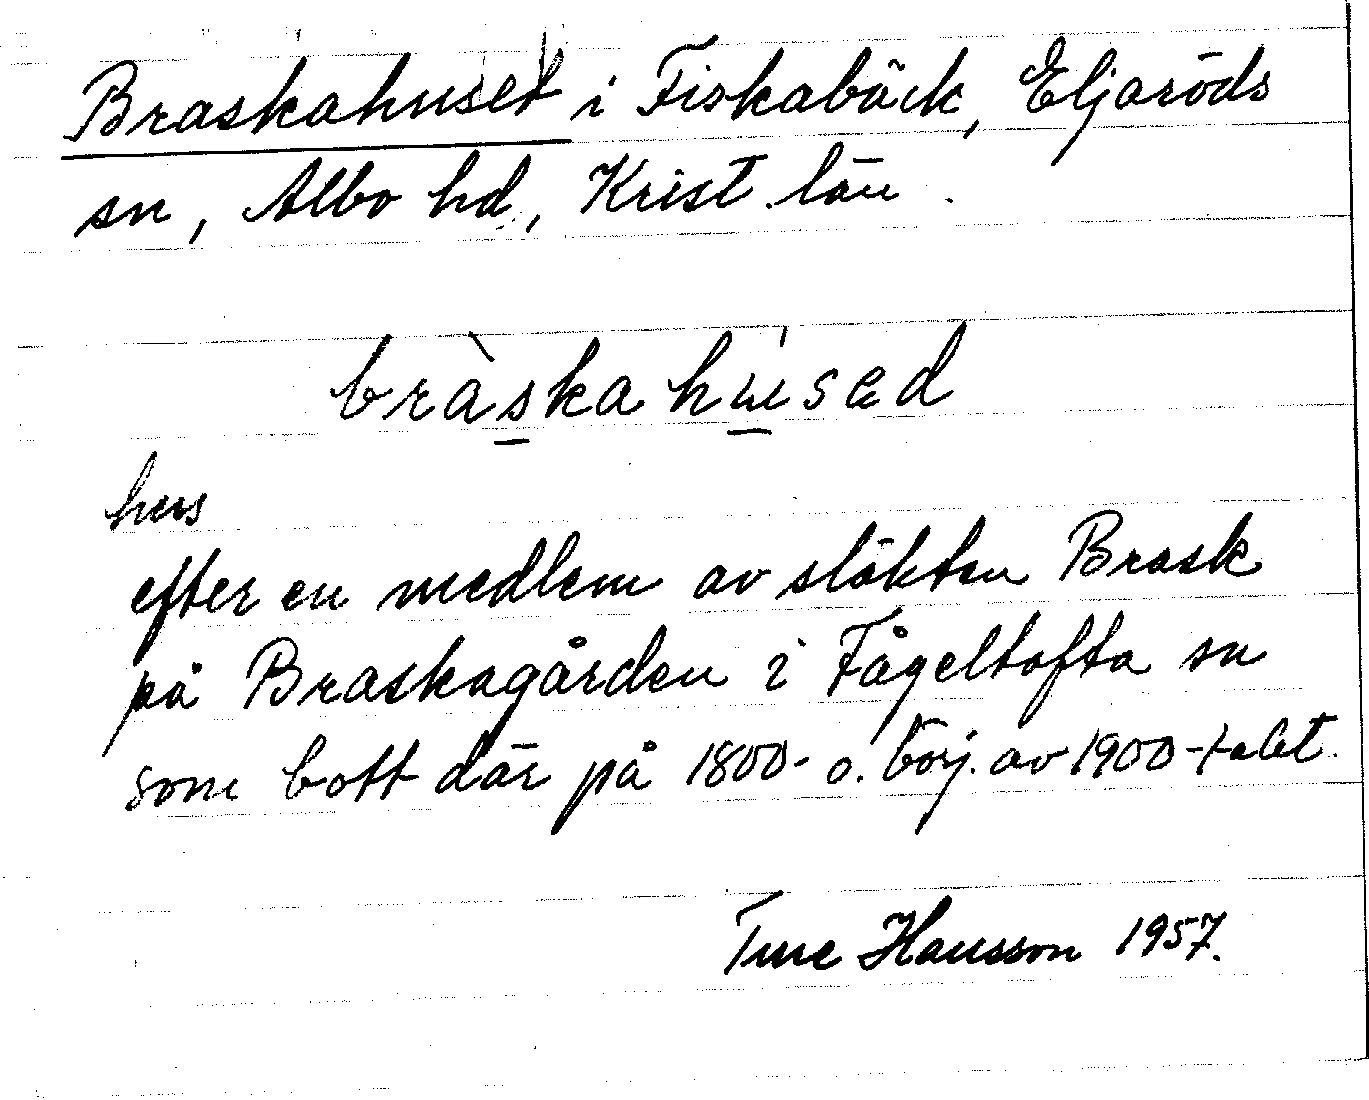 Braskahuset i Fiskabäck, Eljaröds
sn, Albo hd, Krist. län.
bràska húsæd
hus
efter en medlem av släkten Brask
på Braskagården i Fågeltofta sn
som bott där på 1800- o. börj. av 1900-talet.
Ture Hansson 1957.